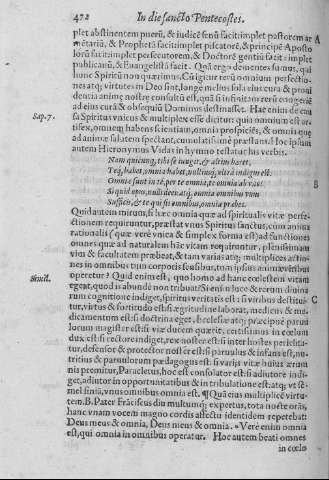 472 In die sancto Pentecostes.
plet abstinentem puerũ, & iudicẽ senũ facit: implet pastorem ar A
mẽtariũ, & Prophetã facit: implet piscatorẽ, & principẽ Aposto
lorũ facit: implet persecutorem, & Doctorẽ gentiũ facit: implet
publicanũ, & Euangelistã facit. Quã ergo dementes sumus, qui
hunc Spiritũ nõ quærimus. Cũ igitur rerũ omnium perfectio-
nes atq; virtutes in Deo sint, longè melius solis eius cura & proui
dentia animę nostrę consultũ est, quã si infinitæ rerũ
ad eius curã & obsequiũ Dominus destinasset. Hæc enim de cau
Sap. 7. sa Spiritus vnicus & multiplex esse dicitur: quia omnium est ar-
tifex, omnem habens scientiam, omnia prospiciẽs, & omnia quę
ad animæ salutem spectant, cumulatissimè præstans. Hoc ipsum
autem Hieronymus Vidas in hymno testatur his verbis.
Nam quicunq; tibi se iunget, & altim hæret,
Teq́; habet, omnia habet, vltimq́; vltrà indigus est.
Omnia sunt in te, per te omnia, te omnia ab vno: B
Si quid opus, nusti desit atq; omnia omnibus vnus
Sufficis, & te qui sis omnibus, omnia præbes.
Quid autem mirum, si hæc omnia quæ ad spiritualis vitæ perfe-
ctionem requiruntur, præstat vnus Spiritus sanctus, cùm anima
rationalis (quæ verè vnica & simplex forma est) ad functiones
omnes quæ ad naturalem hãc vitam requiruntur, plenissimam
vim & facultatem præbeat, & tam varias atq; multiplices actio
nes in omnibus tum corporis sensibus, tum ipsius animæ viribus
operetur? Quid enim est, quo homo ad hanc cœlestem vitam
Simil. egeat, quod is abundè non tribuat? Si enim luce & rerum diuina
rum cognitione indiget, spiritus veritatis est: si viribus destitui- C
tur, virtus & fortitudo est: si ægritudine laborat, medicus & me-
dicamentum est: si doctrina eget, Ecclesiæ atq; præcipuè paruu
lorum magister est: si viæ ducem quærit, certissimus in cœlum
dux est: si rectore indiget, rex noster est: si inter hostes periclita-
tur, defensor & protector noster est: si paruulus & infans est, nu-
tritius & paruulorum pædagogus est: si varijs vitæ huius ærum
nis premitur, Paracletus, hoc est consolator est: si adiutore indi-
get, adiutor in opportunitatibus & in tribulatione est: atq; vt se-
mel finiã, vnus omnibus omnia est. ¶ Quã eius multiplicẽ virtu-
tem B. Pater Frãciscus diu multumq́; expertus, tota nocte orãs,
hanc vnam vocem magno cordis affectu identidem repetebat:
Deus meus & omnia, Deus meus & omnia. Verè enim omnia
est, qui omnia in omnibus operatur. Hoc autem beati omnes
in cœlo